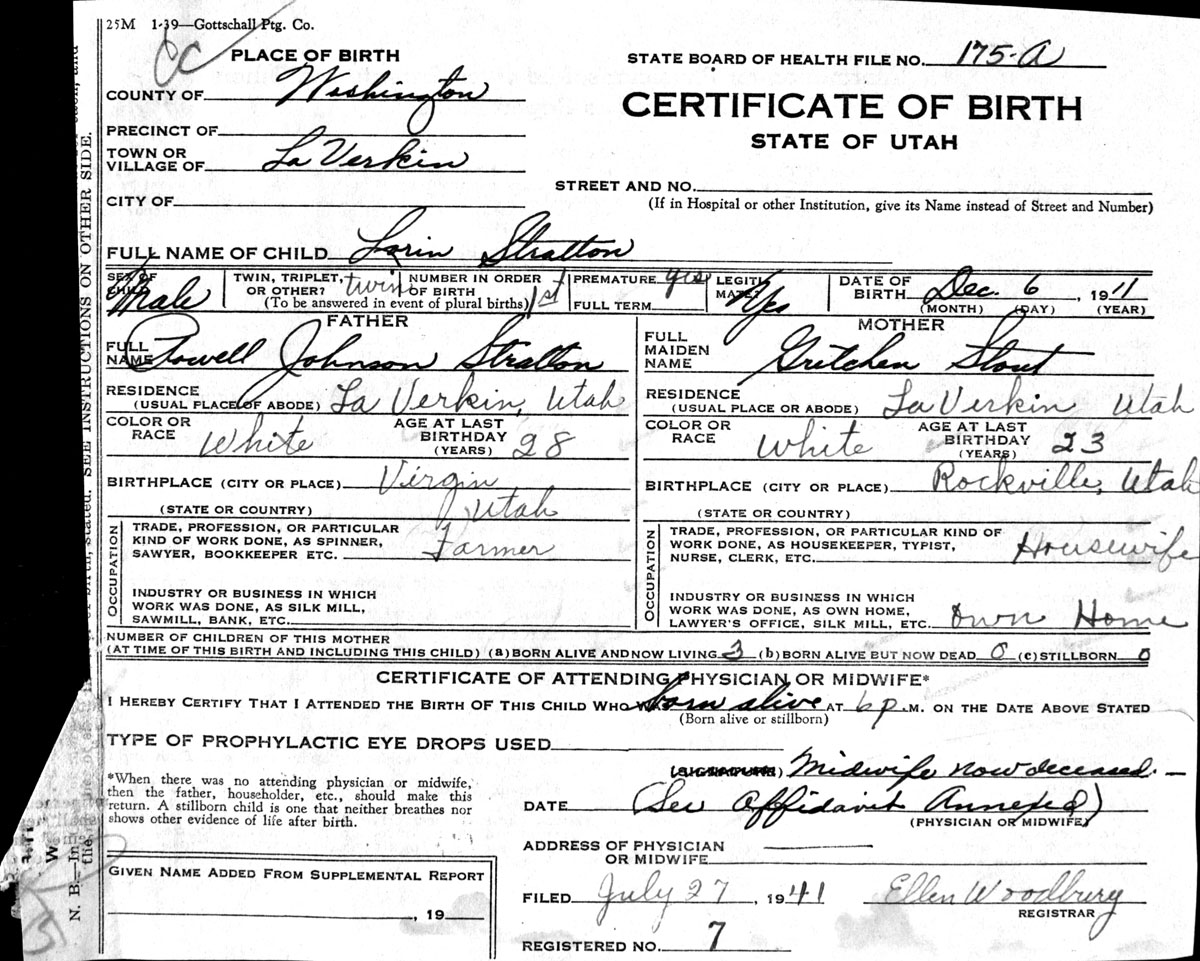 25M 1-39—Gottschall Ptg. Co.
CC
PLACE OF BIRTH
STATE BOARD OF HEALTH FILE NO. 175-A
COUNTY OF Washington
CERTIFICATE OF BIRTH
PRECINCT OF
STATE OF UTAH
TOWN OR VILLAGE OF La Verkin
STREET AND NO.
CITY OF
(If in Hospital or other Institution, give its Name instead of Street and Number)
FULL NAME OF CHILD Lorin Stratton
SEX OF CHILD Male
TWIN, TRIPLET, OR OTHER? twin
NUMBER IN ORDER OF BIRTH 1st
(To be answered in event of plural births)
PREMATURE yes
FULL TERM
LEGITIMATE? Yes
DATE OF BIRTH Dec. 6, 1911
(MONTH) (DAY) (YEAR)
FATHER
FULL NAME Rowell Johnson Stratton
RESIDENCE (USUAL PLACE OF ABODE) La Verkin, Utah
COLOR OR RACE White
AGE AT LAST BIRTHDAY (YEARS) 28
BIRTHPLACE (CITY OR PLACE) Virgin
(STATE OR COUNTRY) Utah
OCCUPATION
TRADE, PROFESSION, OR PARTICULAR
KIND OF WORK DONE, AS SPINNER,
SAWYER, BOOKKEEPER ETC. Farmer
INDUSTRY OR BUSINESS IN WHICH
WORK WAS DONE, AS SILK MILL,
SAWMILL, BANK, ETC.
MOTHER
FULL MAIDEN NAME Gritchen Stout
RESIDENCE (USUAL PLACE OR ABODE) La Verkin Utah
COLOR OR RACE White
AGE AT LAST BIRTHDAY (YEARS) 23
BIRTHPLACE (CITY OR PLACE) Rockville, Utah
(STATE OR COUNTRY)
OCCUPATION
TRADE, PROFESSION, OR PARTICULAR KIND OF
WORK DONE, AS HOUSEKEEPER, TYPIST,
NURSE, CLERK, ETC. Housewife
INDUSTRY OR BUSINESS IN WHICH
WORK WAS DONE, AS OWN HOME,
LAWYER'S OFFICE, SILK MILL, ETC. Own Home
NUMBER OF CHILDREN OF THIS MOTHER
(AT TIME OF THIS BIRTH AND INCLUDING THIS CHILD) (a) BORN ALIVE AND NOW LIVING 3 (b) BORN ALIVE BUT NOW DEAD 0 (c) STILLBORN 0
CERTIFICATE OF ATTENDING PHYSICIAN OR MIDWIFE*
I HEREBY CERTIFY THAT I ATTENDED THE BIRTH OF THIS CHILD WHO WAS born alive AT 6 p.M. ON THE DATE ABOVE STATED
(Born alive or stillborn)
TYPE OF PROPHYLACTIC EYE DROPS USED
*When there was no attending physician or midwife,
then the father, householder, etc., should make this
return. A stillborn child is one that neither breathes nor
shows other evidence of life after birth.
(SIGNATURE) Midwife now deceased.—
DATE (See Affidavit Annexed)
(PHYSICIAN OR MIDWIFE)
ADDRESS OF PHYSICIAN OR MIDWIFE
GIVEN NAME ADDED FROM SUPPLEMENTAL REPORT
, 19
FILED July 27, 1941 Ellen Woodbury
REGISTRAR
REGISTERED NO. 7
birth, stated. SEE INSTRUCTIONS ON OTHER SIDE.
N. B.—In